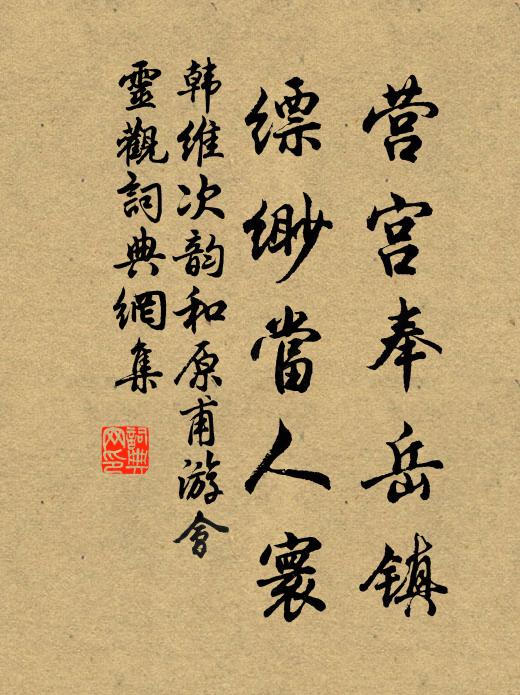 营宫奉岳镇
缥缈當人寰
韩维次韵和原甫游會
靈觀詞典網集
詞典网印